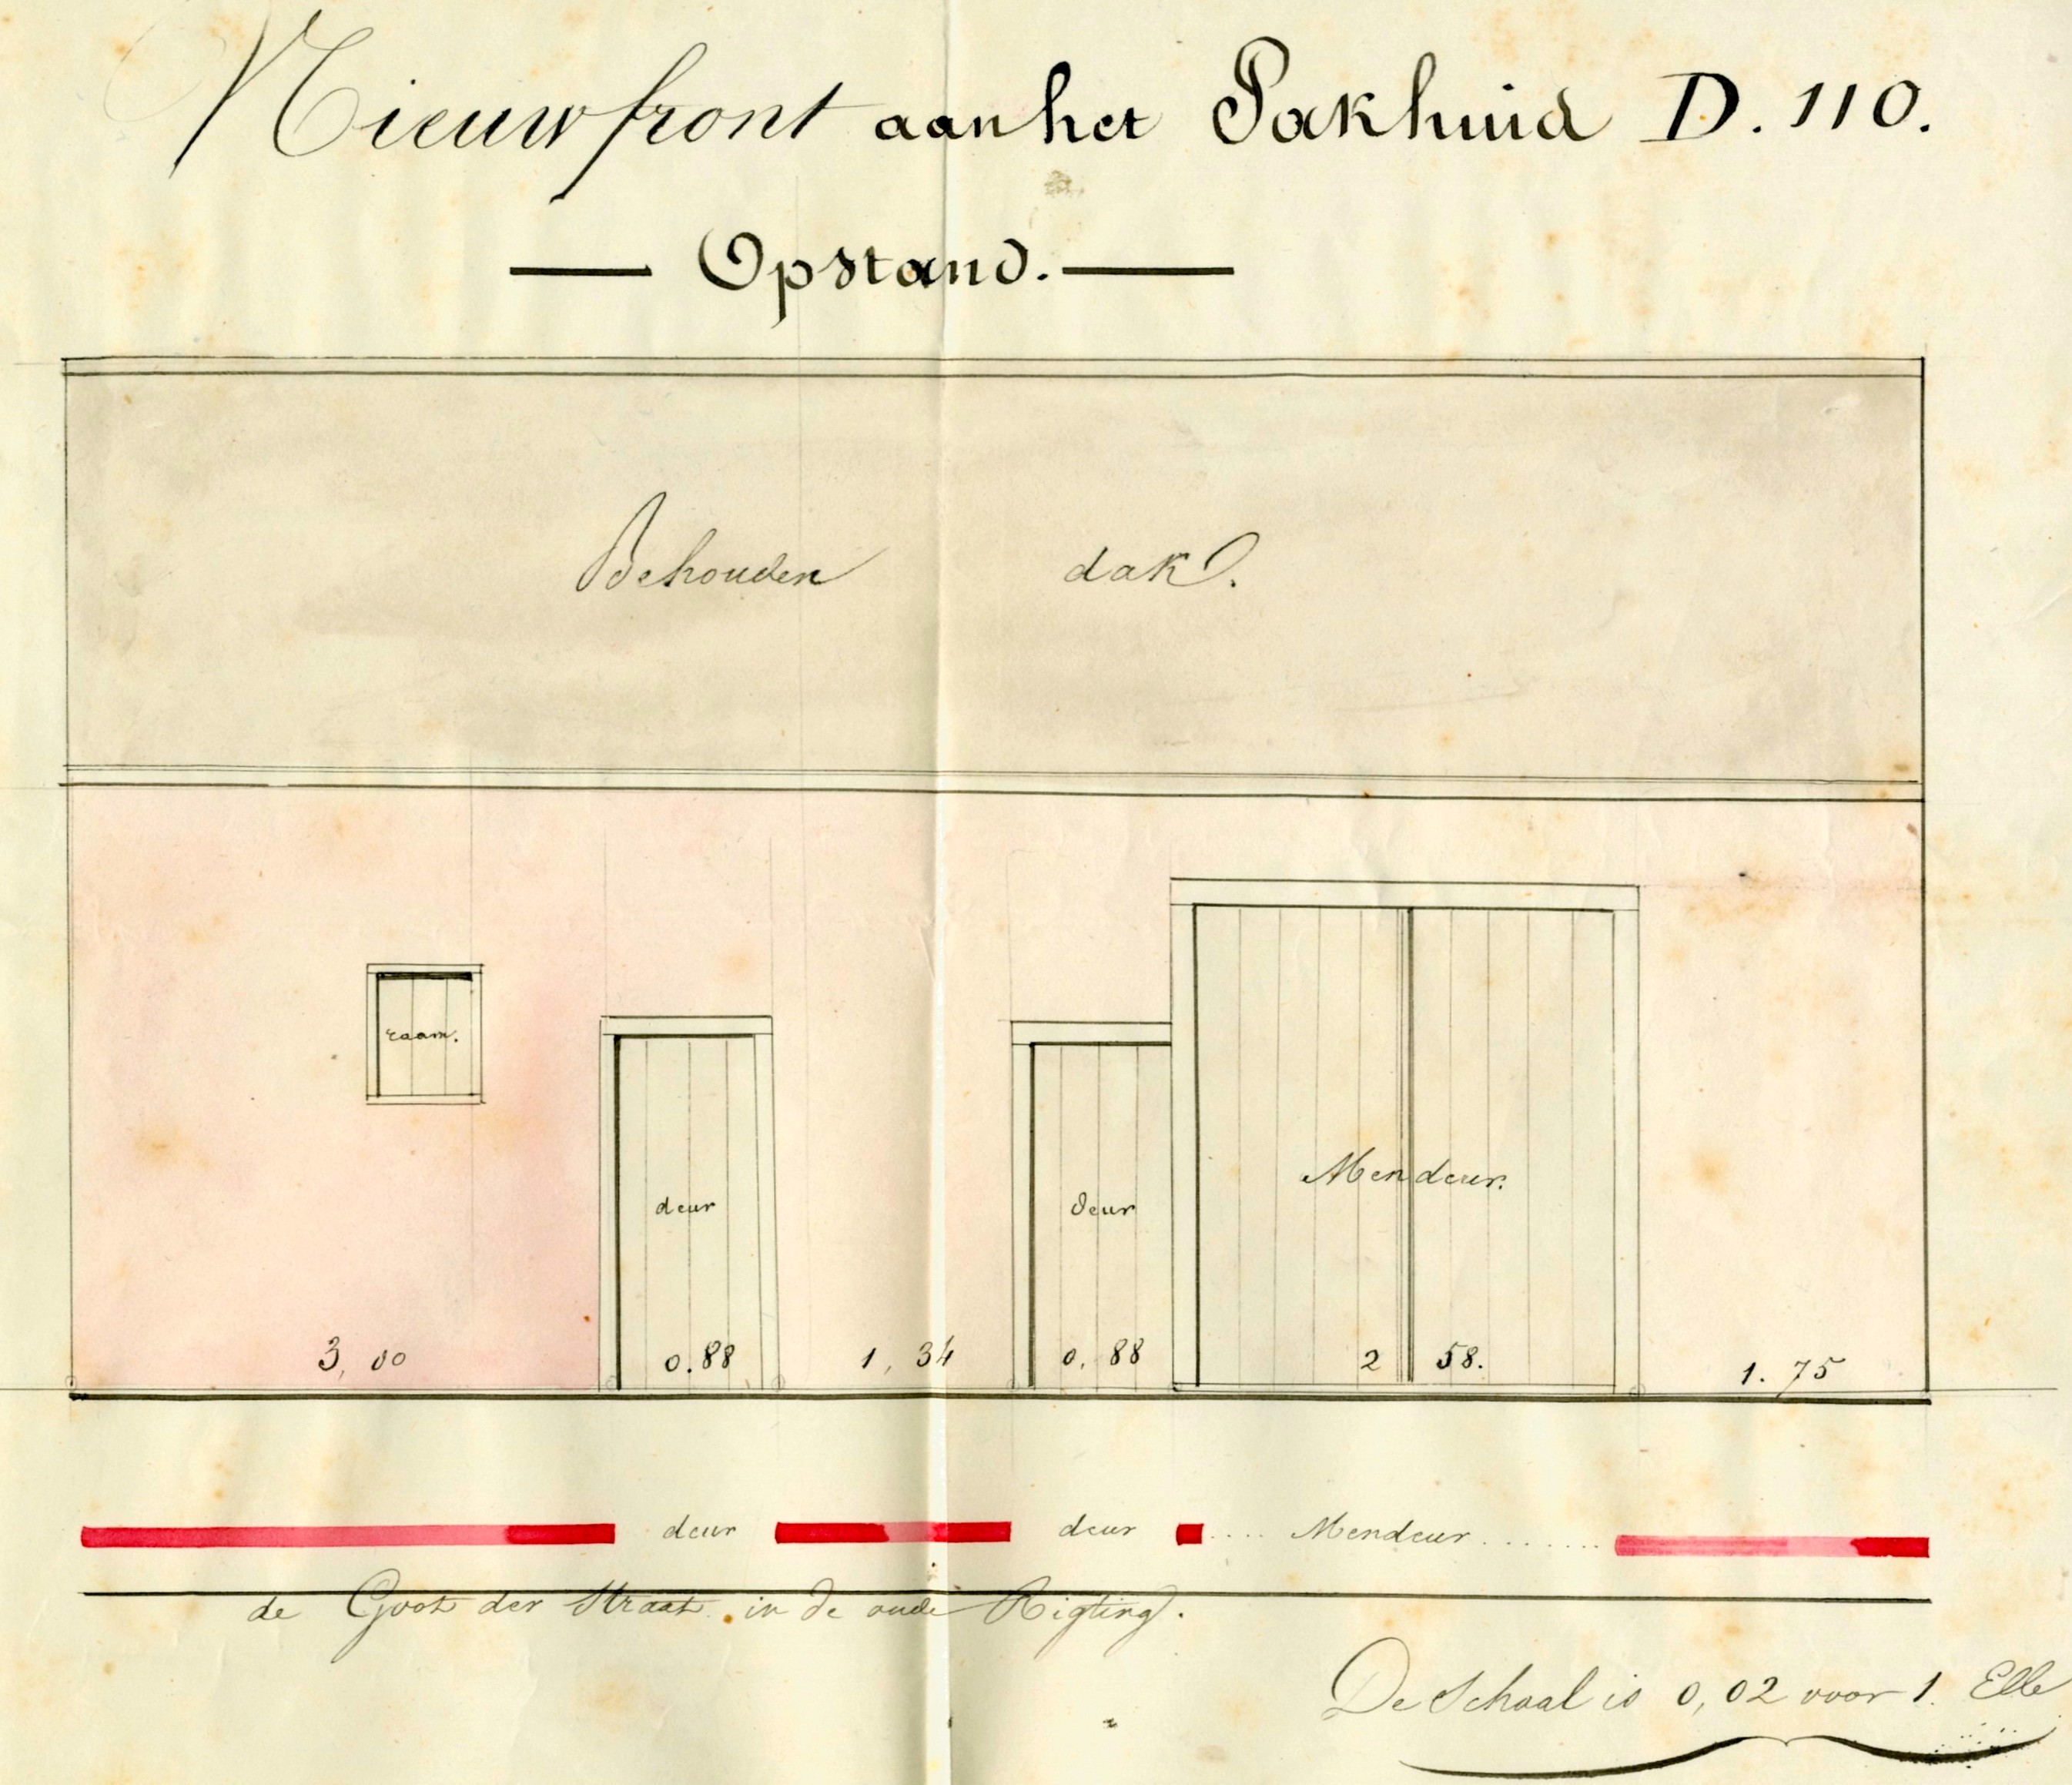 Nieuw front aan het Pakhuis D. 110.
Opstand.
Behouden dak.
raam.
deur
deur
Mendeur.
3,00 0.88 1,34 0,88 2 58. 1.75
deur deur .... Mendeur.......
de Goot der Straat in de oude Rigting.
De Schaal is 0,02 voor 1. Elle